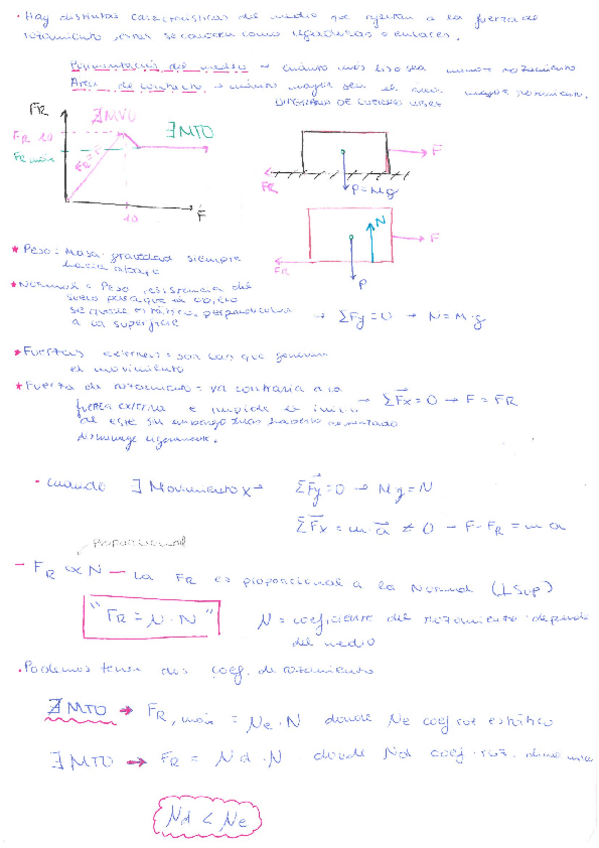 · Hay distintas características del medio que afectan a la fuerza de
rozamiento, estas se conocen como ligaduras o enlaces.
del medio → cuanto más liso sea menos rozamiento
Área de contacto → cuanto mayor sea el área mayor rozamiento.
DIAGRAMA DE CUERPO LIBRE
FR
∄MVO
FR 10
∃MTO
FR máx
FR = F
10
F
F
FR
P=Mg
N
F
FR
P
* Peso: Masa·gravedad siempre
hacia abajo
* Normal = Peso, resistencia del
suelo para que el objeto
se quede estático, perpendicular
a la superficie
→ ΣFy = 0 → N = M·g
* Fuerzas externas = son las que generan
el movimiento
* Fuerza de rozamiento = va contraria a la
fuerza externa e impide el inicio
de este sin embargo tras haberlo
disminuye ligeramente.
→ ΣFx = 0 → F = FR
- cuando ∃ Movimiento x → ΣFy = 0 → Mg = N
ΣFx = m a ≠ 0 → F - FR = m a
proporcional
- FR ∝ N — La FR es proporcional a la Normal (⊥ Sup)
"FR = μ · N"
μ = coeficiente del rozamiento depende
del medio
· Podemos tener dos coef. de rozamiento
∄ MTO → FR, máx = μe · N donde μe coef roz estático
∃ MTO → FR = μd · N donde μd coef. roz. dinámico
μd < μe